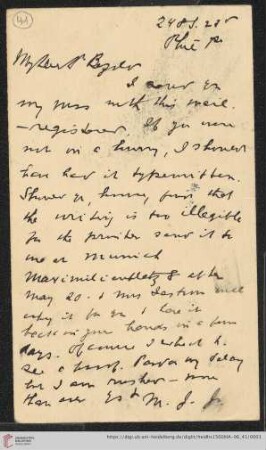 41
2481. 20th
Phil Pa
My dear Dr Bezold
I send you
my mss with this mail.
– registered. If you were
not in a hurry, I should
have had it typewritten.
Should you, however, find that
the writing is too illegible
for the printer send it to
me at Munich
Maximiliansplatz 8 after
May 20. I
copy it for you & have it
back in your hands in a few
days. Of course I wish to
see a proof. Pardon my delay
but I am rushed – more
than ever M. J. Jr
https://digi.ub.uni-heidelberg.de/diglit/heidhs1501bIII-A6_41/0001
© Universitätsbibliothek Heidelberg